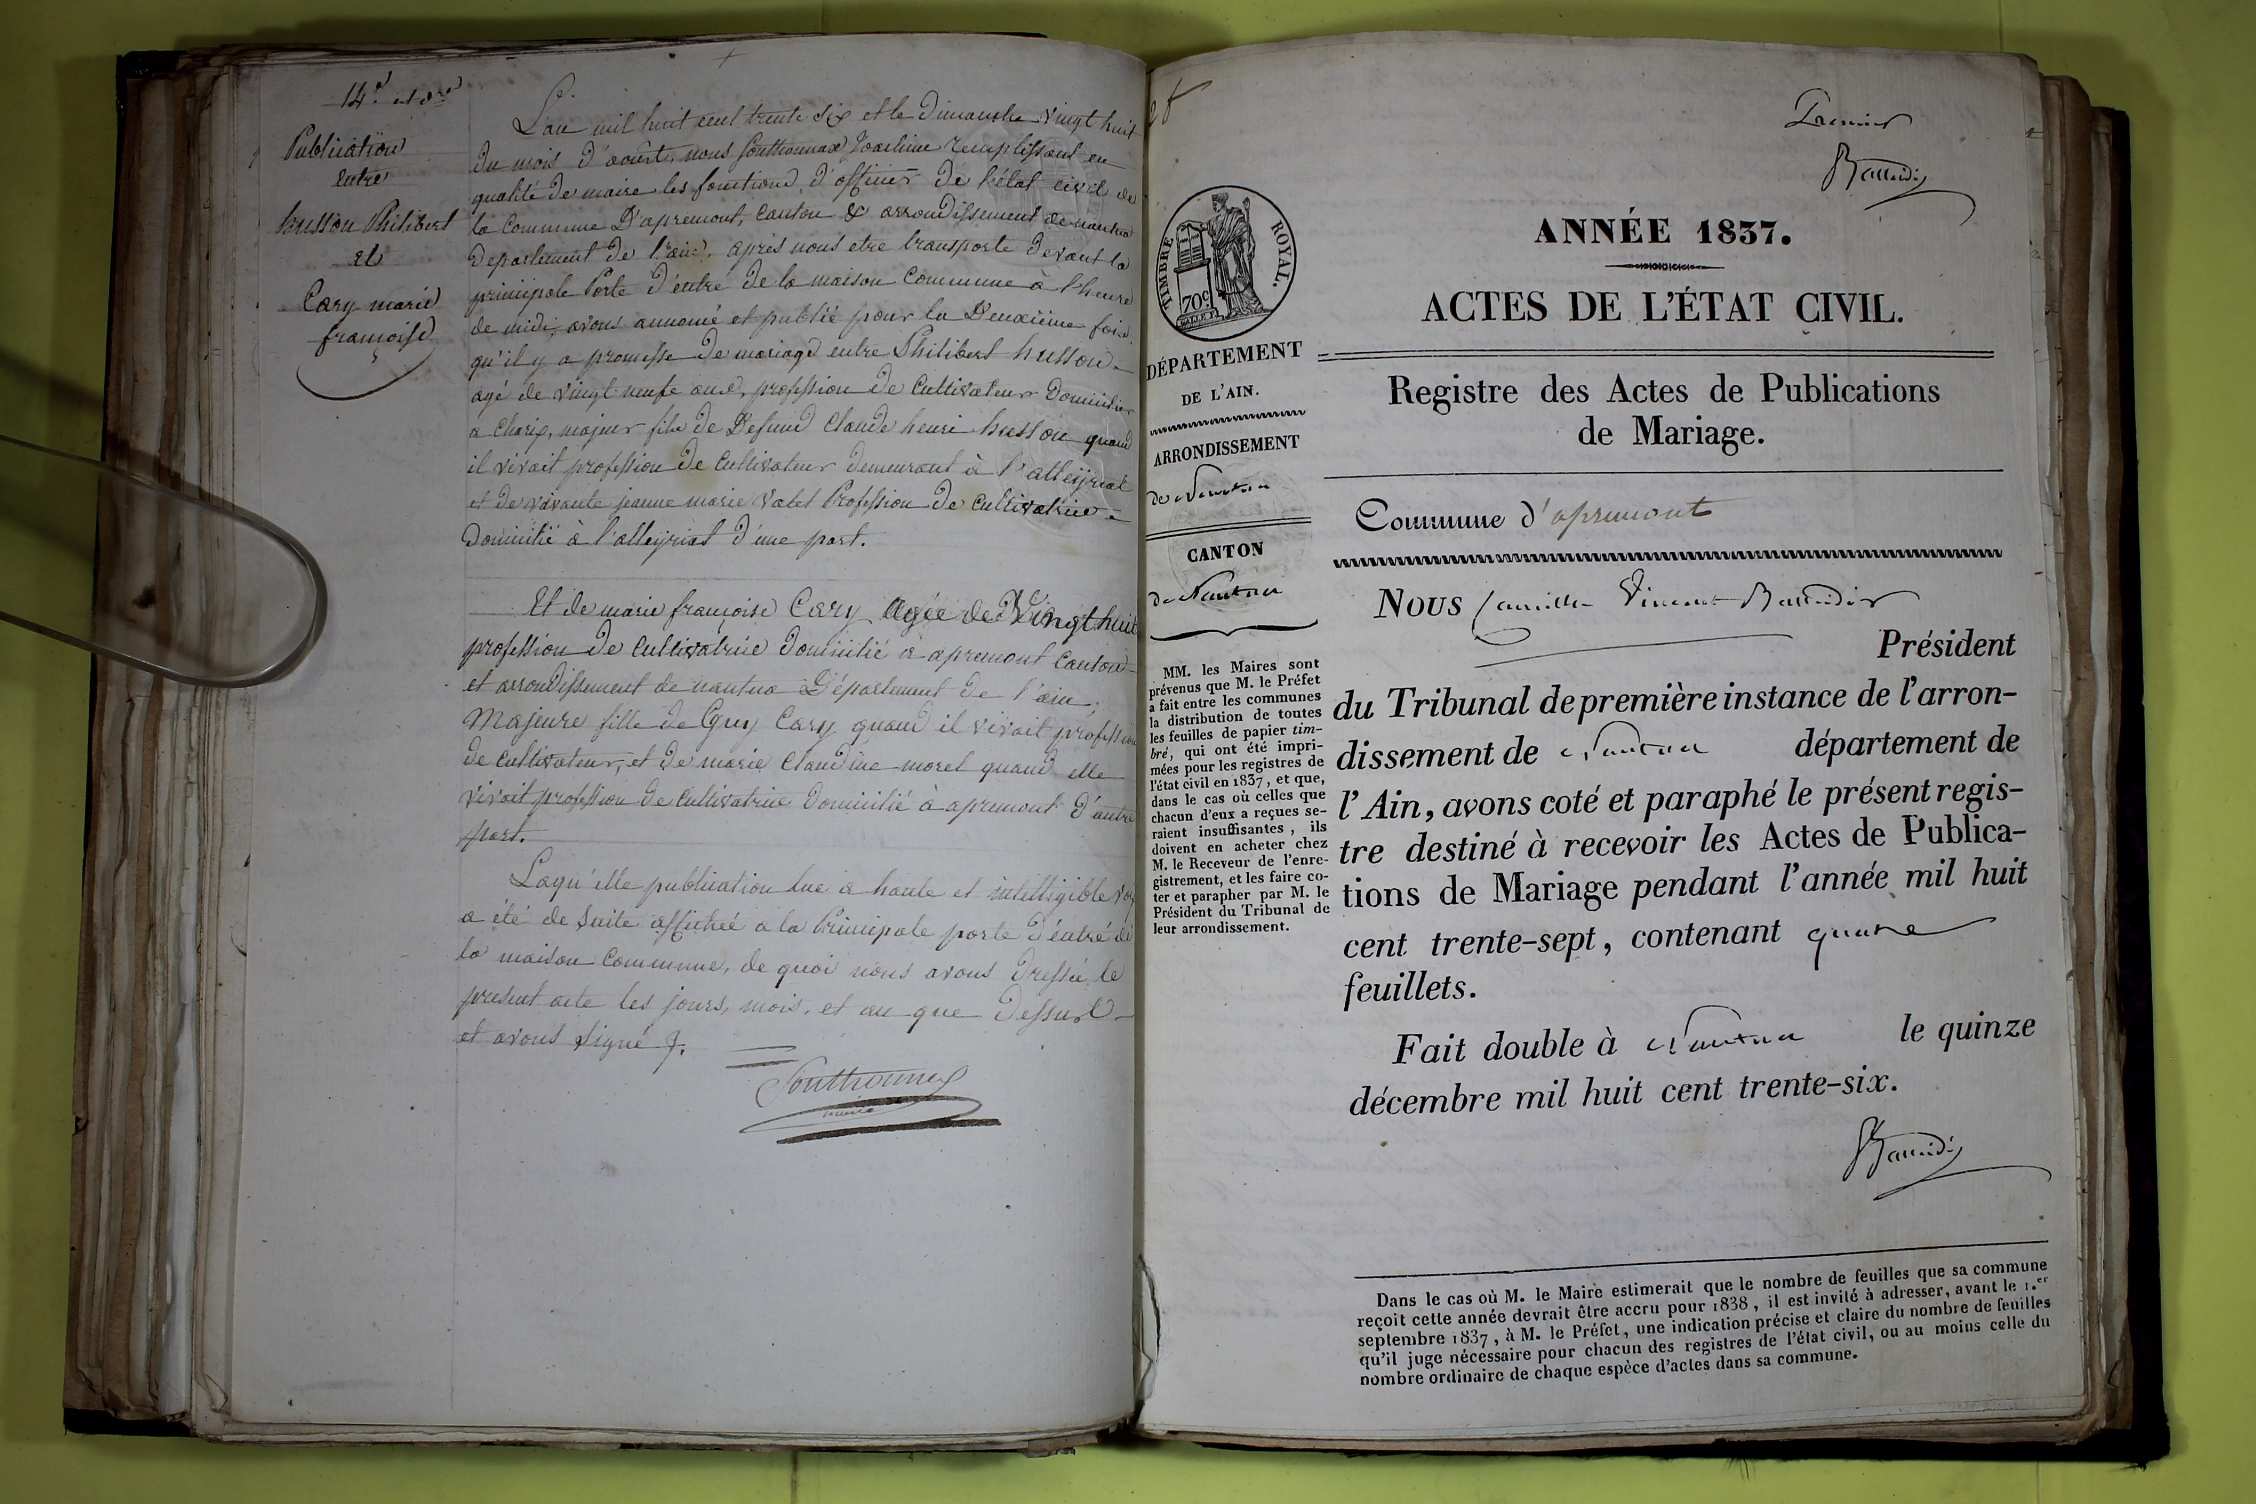 Publication
entre
husson Philibert
et
Cary marie
françoise
L'an mil huit cent trente six et le Dimanche vingt huit
du mois d'août, nous Jouthonnax remplissant en
qualité de maire les fonctions d'officier de l'état civil de
la commune D'apremont, canton & arrondissement de nantua
departement de l'ain, après nous etre transporte devant la
principale Porte d'entré de la maison commune à l'heure
de midi, avons annoncé et publié pour la Deuxième fois
qu'il y a promesse de mariage entre Philibert husson
agé de vingt neufe ans, profession de Cultivateur Domicilier
a Charix, majeur fils de Defunt Claude henri husson quand
il vivait profession de Cultivateur demeurant à l'alleyriat
et de vivante jeanne marie Profession de cultivatrice
Domicilié à l'alleyriat d'une part.
Et de marie françoise Cary Agée de Vingt huit
profession de Cultivatrice Domicilié à apremont Canton
et arrondissement de nantua Département de l'ain,
Majeure fille de Guy Cary quand il vivait profession
de cultivateur, et de marie Claudine morel quand elle
vivait profession de cultivatrice Domicilié à apremont d'autre
part.
Laqu'elle publication lue a haute et intelligible voix
a été de suite affichée a la Principale porte d'éntré de
la maison commune, de quoi nous avons dressée le
present acte les jours, mois, et an que dessus
et avons signé
ANNÉE 1837.
ACTES DE L'ÉTAT CIVIL.
Registre des Actes de Publications
de Mariage.
TIMBRE ROYAL.
70c.
DÉPARTEMENT
DE L'AIN.
ARRONDISSEMENT
de Nantua
CANTON
de Nantua
MM. les Maires sont
prévenus que M. le Préfet
a fait entre les communes
la distribution de toutes
les feuilles de papier tim-
bré, qui ont été impri-
mées pour les registres de
l'état civil en 1837, et que,
dans le cas où celles que
chacun d'eux a reçues se-
raient insuffisantes, ils
doivent en acheter chez
M. le Receveur de l'enre-
gistrement, et les faire co-
ter et parapher par M. le
Président du Tribunal de
leur arrondissement.
Commune d'apremont
Nous Camille Vincent
Président
du Tribunal de première instance de l'arron-
dissement de Nantua département de
l'Ain, avons coté et paraphé le présent regis-
tre destiné à recevoir les Actes de Publica-
tions de Mariage pendant l'année mil huit
cent trente-sept, contenant quatre
feuillets.
Fait double à Nantua le quinze
décembre mil huit cent trente-six.
Dans le cas où M. le Maire estimerait que le nombre de feuilles que sa commune
reçoit cette année devrait être accru pour 1838, il est invité à adresser, avant le 1.er
septembre 1837, à M. le Préfet, une indication précise et claire du nombre de feuilles
qu'il juge nécessaire pour chacun des registres de l'état civil, ou au moins celle du
nombre ordinaire de chaque espèce d'actes dans sa commune.